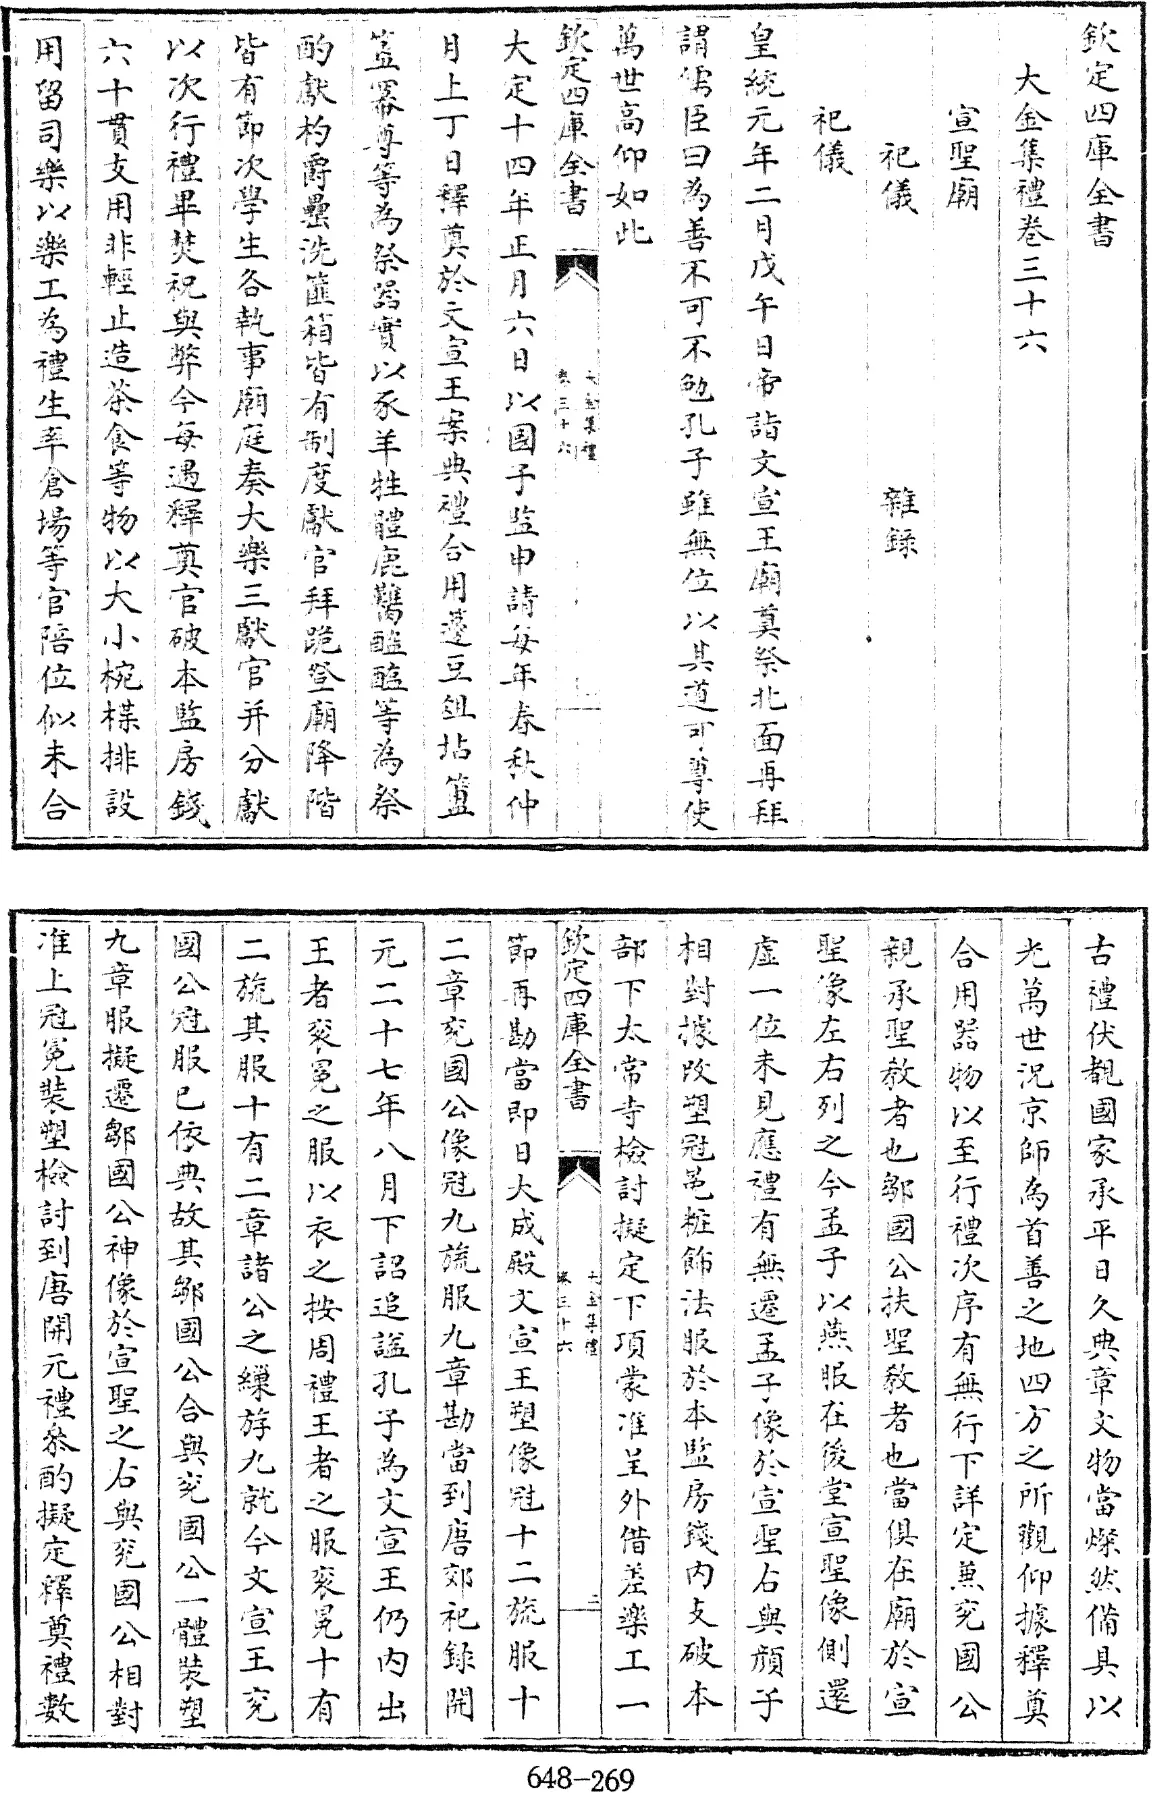 欽定四庫全書
大金集禮卷三十六
宣聖廟
祀儀　雜錄
祀儀
皇統元年二月戊午日帝詣文宣王廟奠祭北面再拜
謂儒臣曰為善不可不勉孔子雖無位以其道可尊使
萬世高仰如此
欽定四庫全書　大金集禮卷三十六　一
大定十四年正月六日以國子監申請每年春秋仲
月上丁日釋奠於文宣王案典禮合用籩豆俎坫簠
簋羃尊等為祭器實以豕羊牲體鹿醢醯等為祭
酌獻杓爵罍洗篚箱皆有制度獻官拜跪登廟降階
皆有節次學生各執事廟庭奏大樂三獻官并分獻
以次行禮畢焚祝與幣今每遇釋奠官破本監房錢
六十貫支用非輕止造茶食等物以大小椀楪排設
用留司樂以樂工為禮生率倉場等官陪位似未合
古禮伏覩國家承平日久典章文物當燦然備具以
光萬世況京師為首善之地四方之所觀仰據釋奠
合用器物以至行禮次序有無行下詳定兼兖國公
親承聖教者也鄒國公扶聖教者也當俱在廟於宣
聖像左右列之今孟子以燕服在後堂宣聖像側還
虛一位未見應禮有無遷孟子像於宣聖右與顏子
相對據改塑冠冕粧飾法服於本監房錢内支破本
部下太常寺檢討擬定下項蒙准呈外借差樂工一
欽定四庫全書　大金集禮卷三十六　二
節再勘當即日大成殿文宣王塑像冠十二旒服十
二章兖國公像冠九旒服九章勘當到唐郊祀錄開
元二十七年八月下詔追諡孔子為文宣王仍内出
王者衮冕之服以衣之按周禮王者之服衮冕十有
二旒其服十有二章諸公之繅斿九就今文宣王兖
國公冠服已依典故其鄒國公合與兖國公一體裝塑
九章服擬遷鄒國公神像於宣聖之右與兖國公相對
准上冠冕裝塑檢討到唐開元禮叅酌擬定釋奠禮數
648-269